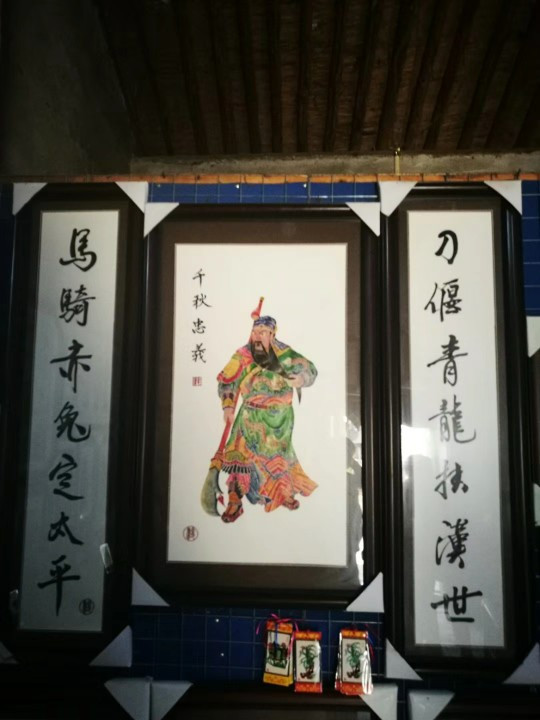 刀偃青龍扶漢世
千秋忠義
馬騎赤兔定太平